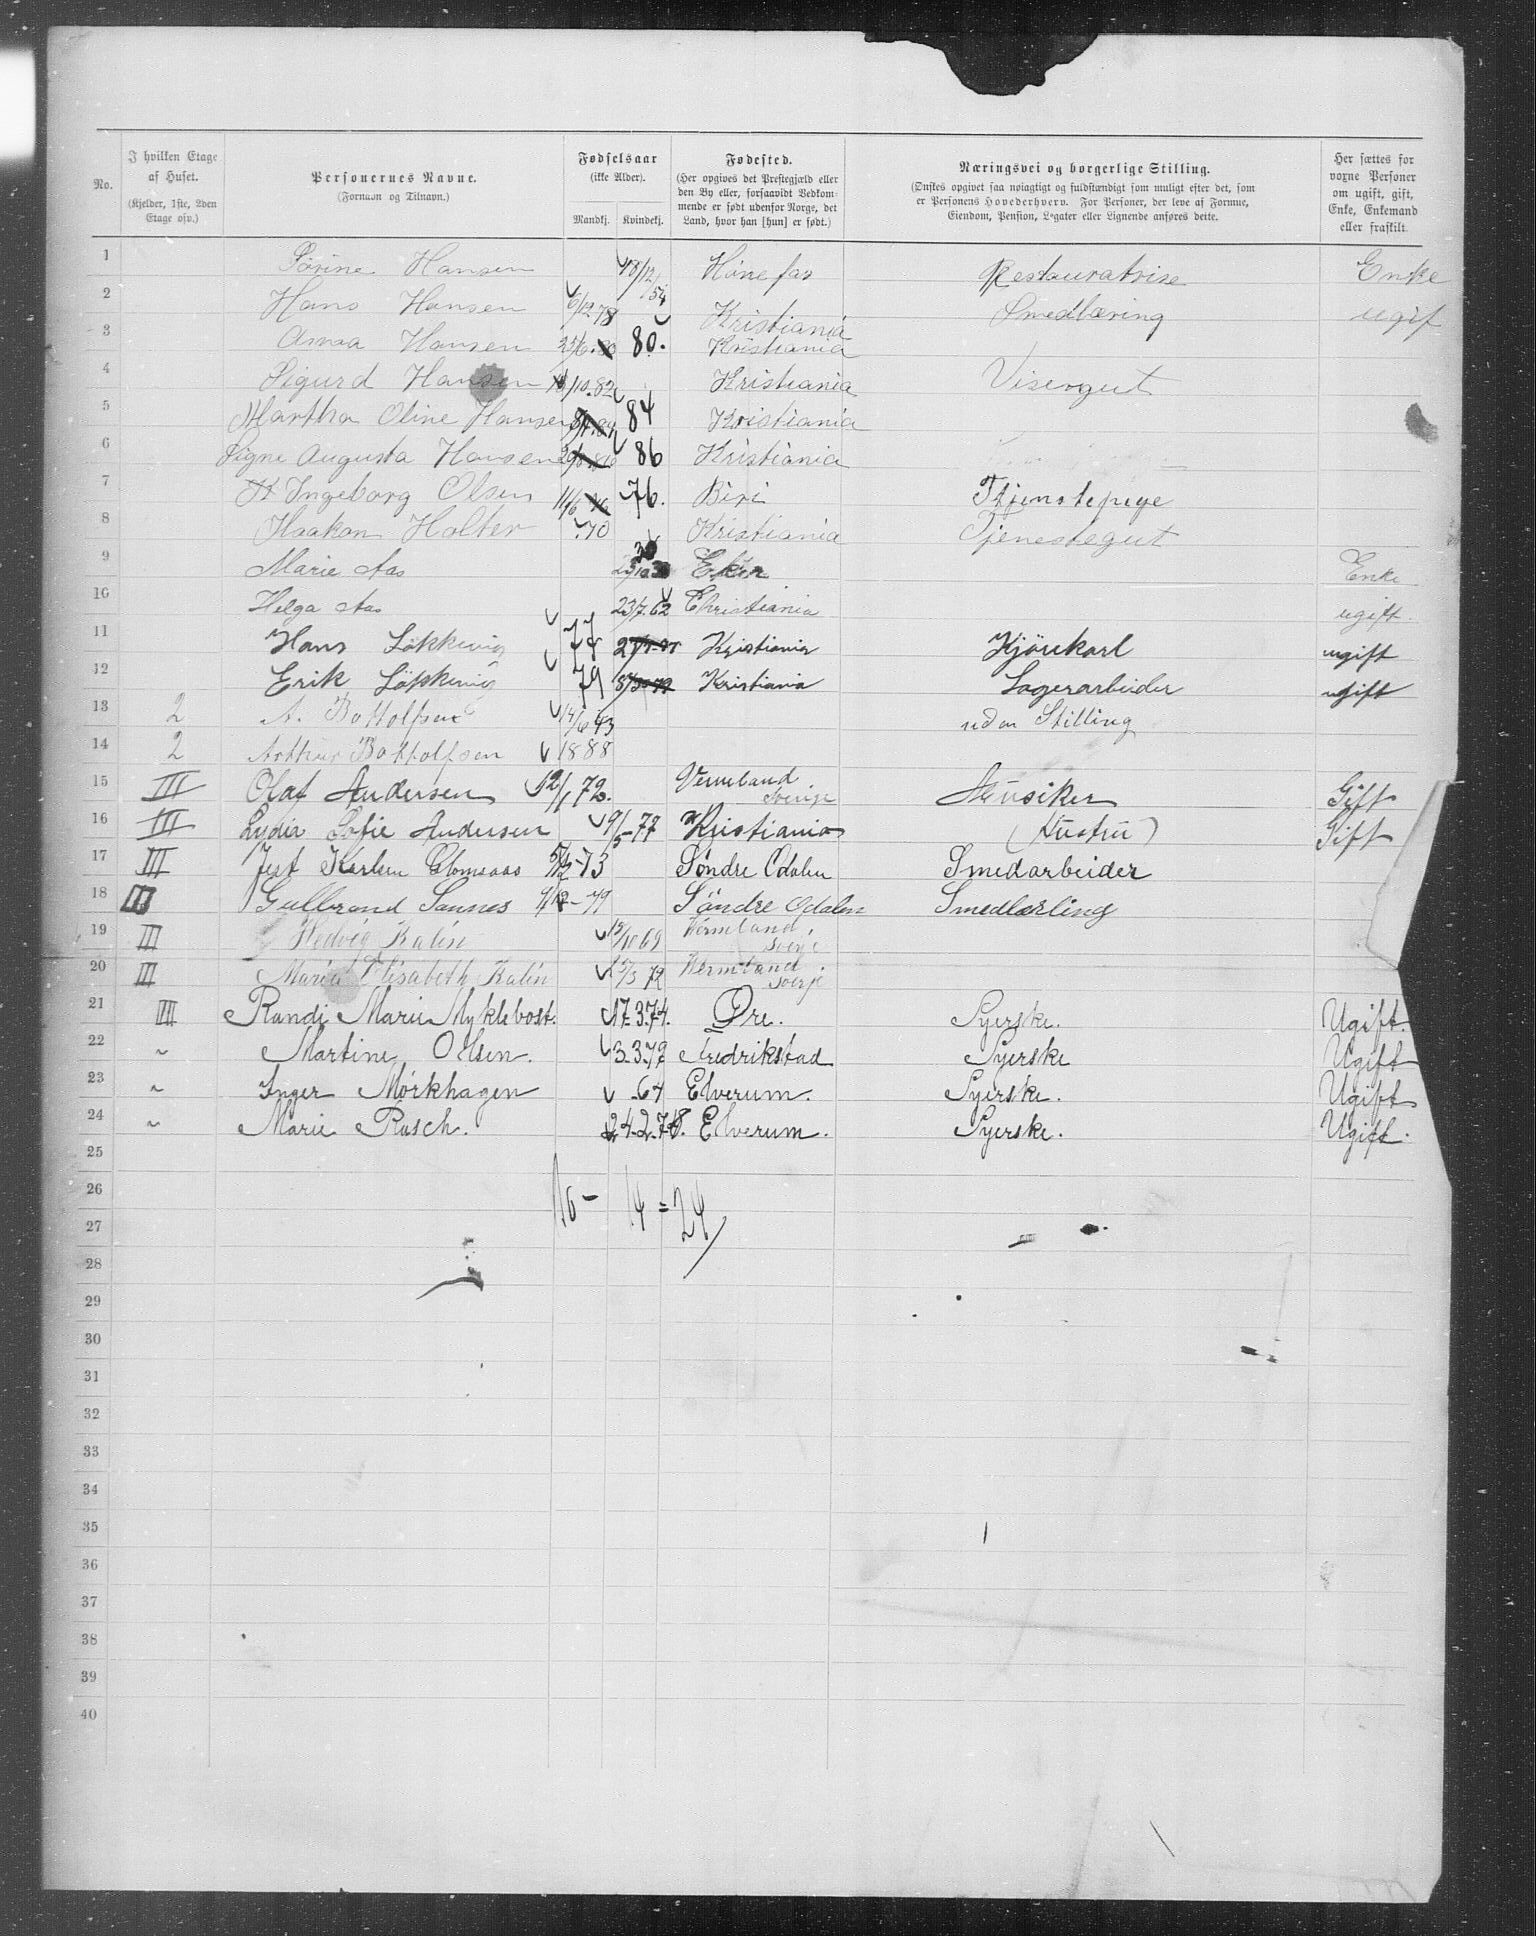 No. | I hvilken Etage af Huset. (Kjelder, 1ste, 2den Etage osv.) | Personernes Navne. (Fornavn og Tilnavn.) | Fødselsaar (ikke Alder). Mandkj. Kvindekj. | Fødested. (Her opgives det Prestegjæld eller den By eller, forsaavidt Vedkommende er født udenfor Norge, det Land, hvor han [hun] er født.) | Næringsvei og borgerlige Stilling. (Ønskes opgivet saa nøiagtigt og fuldstændigt som muligt efter det, som er Personens Hovederhverv. For Personer, der leve af Formue, Eiendom, Pension, Legater eller Lignende anføres dette. | Her sættes for voxne Personer om ugift, gift, Enke, Enkemand eller fraskilt.
1 Sörine Hansen 18/12/54 Hönefas Restauratrise Enke
2 Hans Hansen 6/12 78 Kristiania Smedlæring ugif
3 Anna Hansen 25/6.80 80. Kristiania
4 Sigurd Hansen /10.82 Kristiania Visergut
5 Martha Oline Hansen 84 Kristiania
6 Signe Augusta Hansen 86 Kristiania
7 Ingeborg Olsen 11/6 76 76. Biri Tjenstepige
8 Haakon Holter 70 Kristiania Tjenestegut
9 Marie Aas 30 Eker Enke
10 Helga Aas 23/7.62 Christiania ugift.
11 Hans Løkkevig 77 Kristiania Kjörekarl ugift
12 Erik Løkkevig 79 Kristiania Lagerarbeider ugift
13 2 A. Bottolfsen 14/6 43 uden Stilling
14 2 Arthur Bottolfsen 1888
15 III Olaf Andersen 12/1 72. Vermland Sverige Musiker Gift
16 III Lydia Sofie Andersen 9/5-77 Kristiania (Hustru) Gift
17 III Glomsaas 73 Söndre Odalen Smedarbeider
18 III Gulbrand Sannes 4/12-79 Söndre Odalen Smedlærling
19 III Hedvig Kalin 69 Vermland Sverje
20 III Maria Elisabeth Kalin 15/3 72 Vermland Sverje
21 III Randi Marie Myklebost. 17-3.74. Øre. Syerske. Ugift.
22 ~ Martine Olsen. 3-3.72 Fredrikstad Syerske Ugift
23 ~ Inger Mörkhagen -64 Elverum. Syerske. Ugift
24 ~ Marie Rasch. 24-2.78. Elverum. Syerske. Ugift.
25
26
10 - 14 = 24
27
28
29
30
31
32
33
34
35
36
37
38
39
40